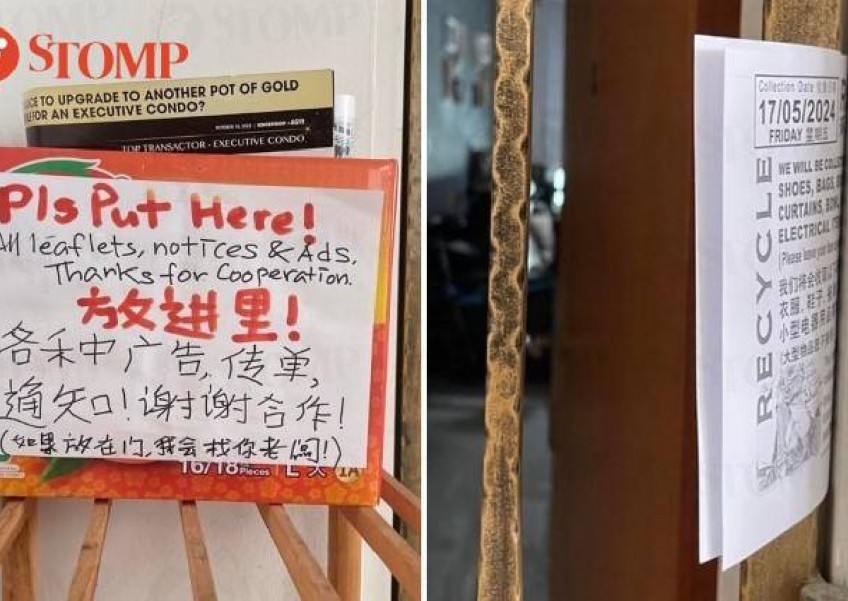 STOMP
CE TO UPGRADE TO ANOTHER POT OF GOLD
FOR AN EXECUTIVE CONDO?
TOP TRANSACTOR - EXECUTIVE CONDO
Pls Put Here!
All leaflets, notices & Ads,
Thanks for Cooperation.
放进里!
各禾中广告,传单,
通知!谢谢合作!
(如果放在门,我会找你老闆!)
16/18 Pieces
Collection Date
17/05/2024
FRIDAY 星期五
RECYCLE
WE WILL BE COLLE
SHOES, BAGS, B
CURTAINS,
ELECTRICAL ITE
(Please leave your
我们将会收
衣服, 鞋子,
小型电器用品
(大型物品